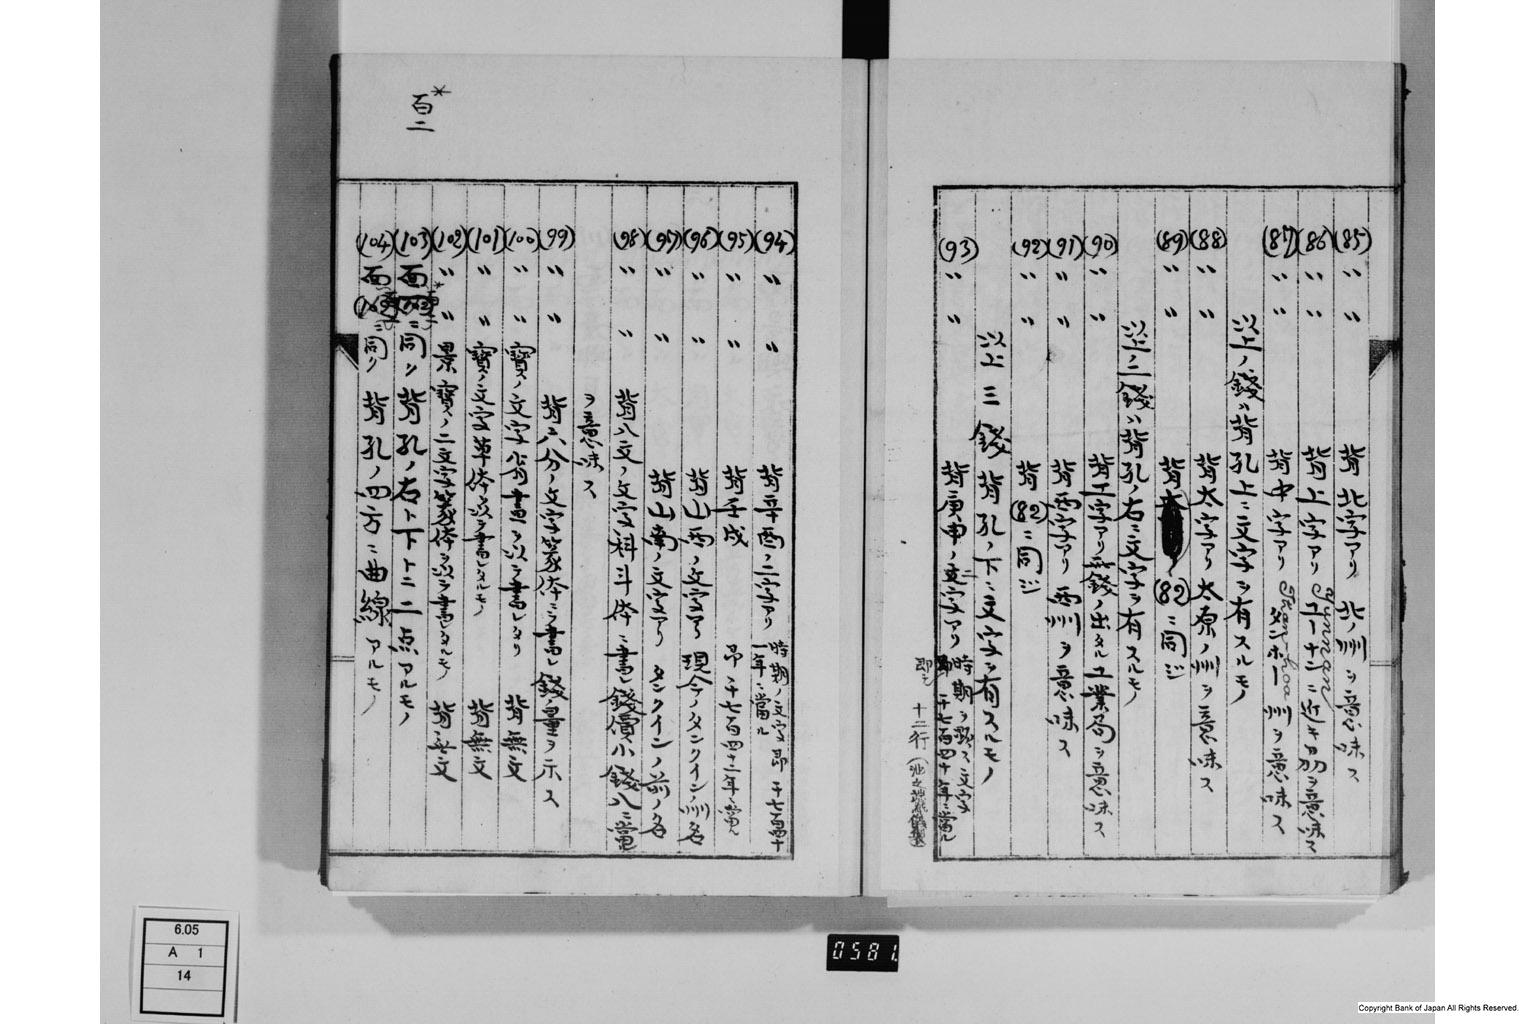 (85) 〃 〃 背北字アリ 北ノ州ヲ意味ス
(86) 〃 〃 背上字アリ Yunnan ユーナンニ近キ
(87) 〃 〃 背中字アリ 州ヲ意味ス
以上ノ錢ハ背孔上ニ文字ヲ有スルモノ
(88) 〃 〃 背大字アリ 太原ノ州ヲ意味ス
(89) 〃 〃 背 (82)ニ同ジ
以上二錢ハ背孔ノ右ニ文字ヲ有スルモノ
(90) 〃 〃 背工字アリ 錢ノ出タル工業局ヲ意味ス
(91) 〃 〃 背西字アリ 西州ヲ意味ス
(92) 〃 〃 背(82)ニ同ジ
以上三錢背孔ノ下ニ文字ヲ有スルモノ
(93) 〃 〃 背庚申ノ文字アリ 時期ヲ 文字
即 千七百四十年ニ當ル
即チ 十二行
(94) 〃 〃 背辛酉ノ二字アリ 時期ノ文字即千七百四十
一年ニ當ル
(95) 〃 〃 背壬戌 即千七百四十二年ニ當ル
(96) 〃 〃 背山西ノ文字アリ 現今ノタンクイン州名
(97) 〃 〃 背山南ノ文字アリ タンクインノ前ノ名
(98) 〃 〃 背八文ノ文字科斗体ニ書シ錢價小錢八ニ當
ヲ意味ス
(99) 〃 〃 背六分ノ文字篆体ニテ書シ錢ノ量ヲ示ス
(100) 〃 〃 寶ノ文字省畫ヲ以テ書シタリ 背無文
(101) 〃 〃 寶ノ文字草体ヲ以テ書シタルモノ 背無文
(102) 〃 〃 景寶ノ二文字篆体ヲ以テ書シタルモノ 背無文
(103) 面 ニ同ジ 背孔ノ右ト下トニ二点アルモノ
(104) 面 ニ同ジ 背孔ノ四方ニ曲線アルモノ
百二
6.05
A 1
14
0581.
Copyright Bank of Japan All Rights Reserved.